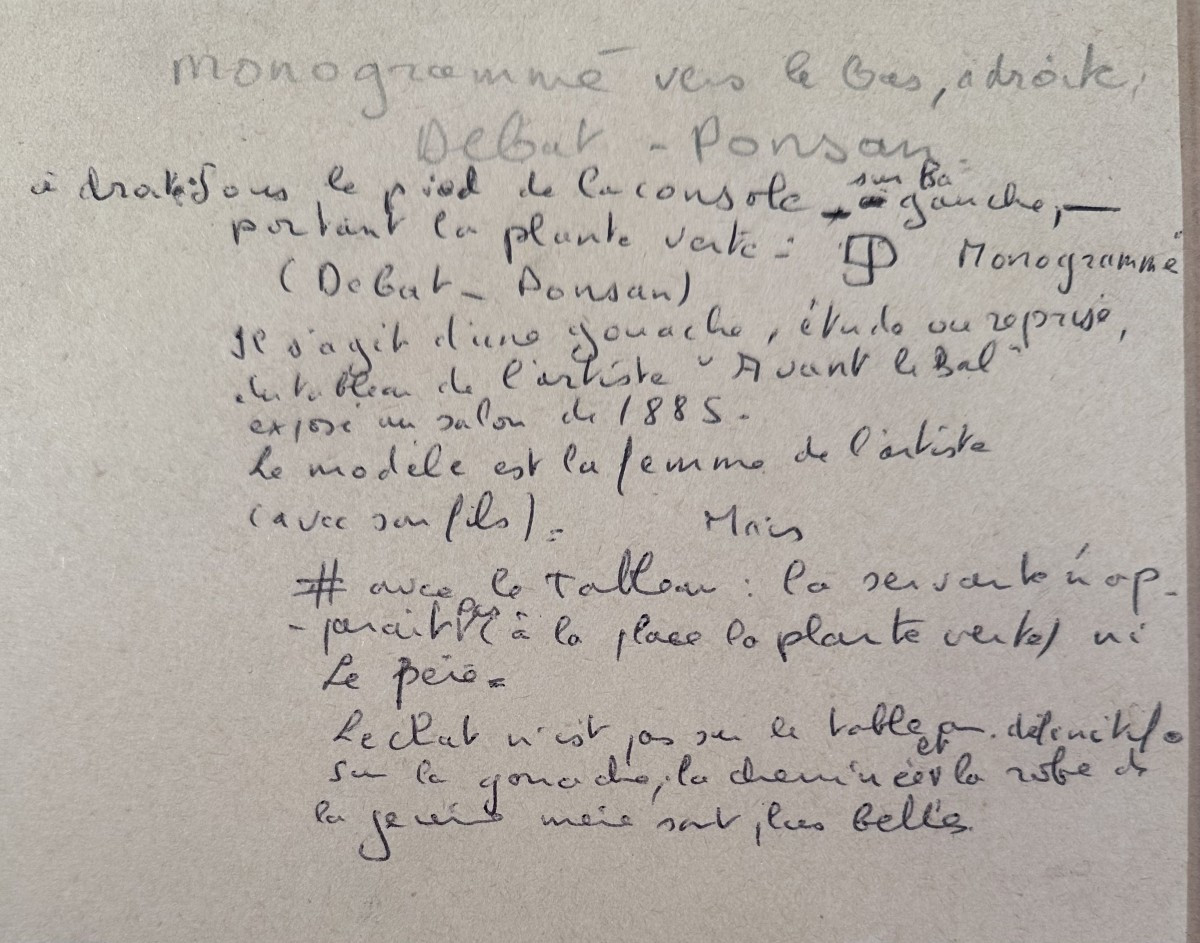 monogrammé vers le bas, à droite,
Debat - Ponsan
à droite: Sous le pied de la console, sur Ba gauche, —
portant la plante verte: Monogrammé
(Debat - Ponsan)
Il s'agit d'une gouache, étude ou reprise,
du tableau de l'artiste "Avant le Bal"
exposé au salon de 1885.
Le modèle est la femme de l'artiste
(avec son fils). Mais
# avec le Tableau: la servante n'ap-
-parait pas (à la place la plante verte) ni
Le père.
Le chat n'est pas sur le tableau définitif.
sur la gouache, la cheminée et la robe de
la jeune mère sont plus belles.